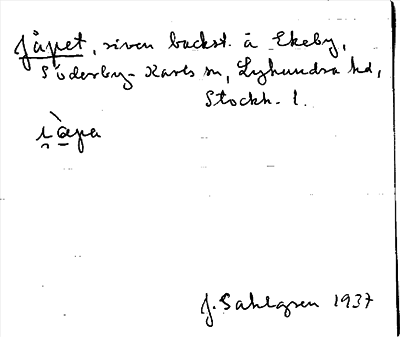 Jåpet, riven backst. å Ekeby,
Söderby-Karls sn, Lyhundra hd,
Stockh. l.
ı̯å̀pa
J. Sahlgren 1937